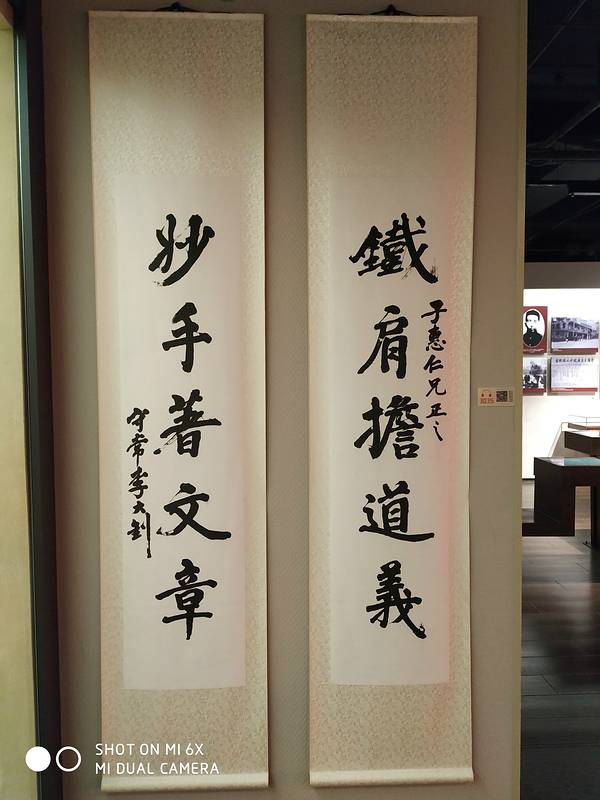 鐵肩擔道義
子惠仁兄正之
妙手著文章
守常李大釗
SHOT ON MI 6X
MI DUAL CAMERA